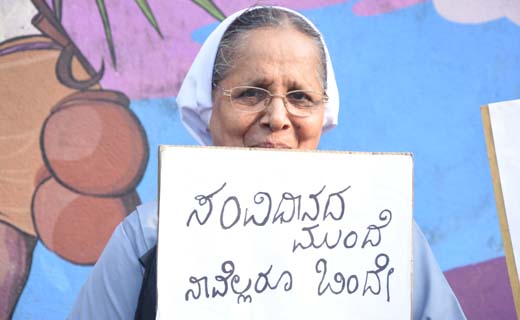 ಸಂವಿದಿನದ
ಮುಂದೆ
ನಾವೆಲ್ಲರೂ ಒಂದೇ